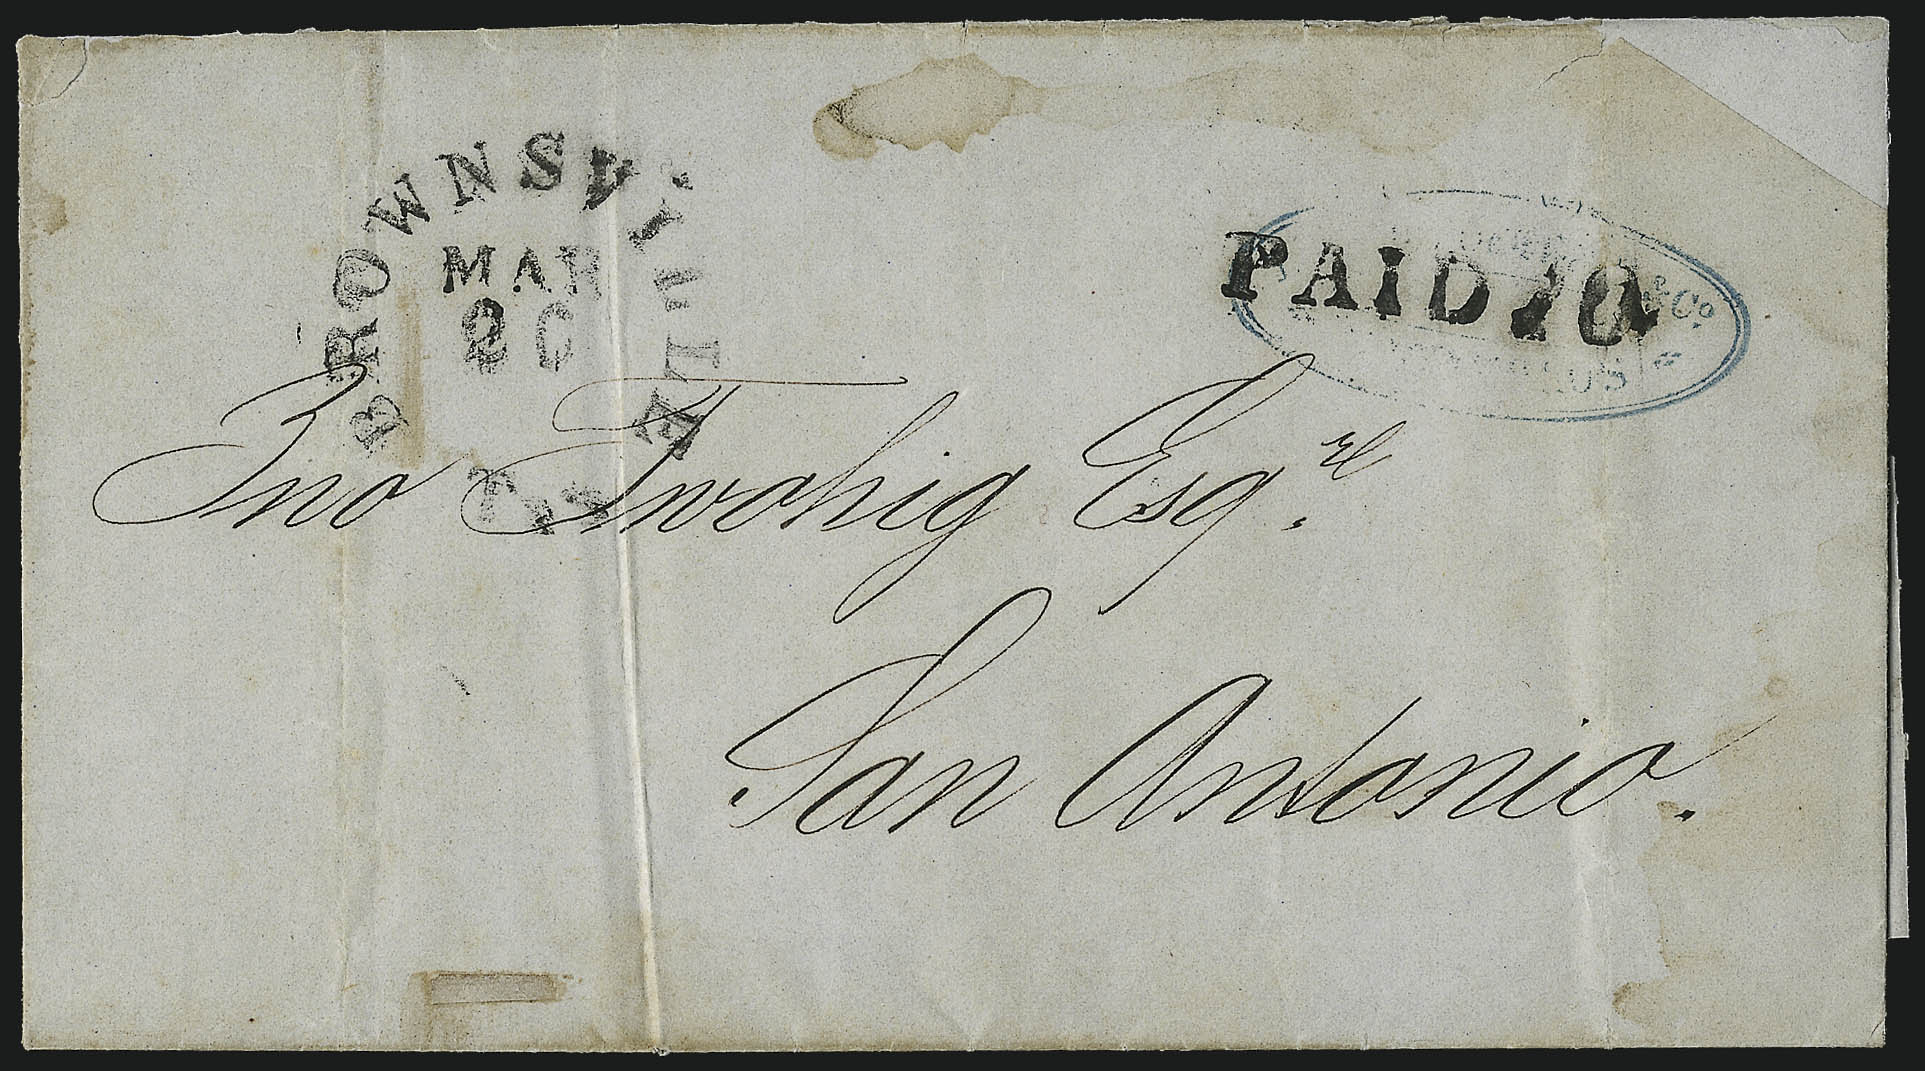 BROWNSVILLE
MAR
20
PAID 10
& Co.
Jno Twohig Esqre.
San Antonio.